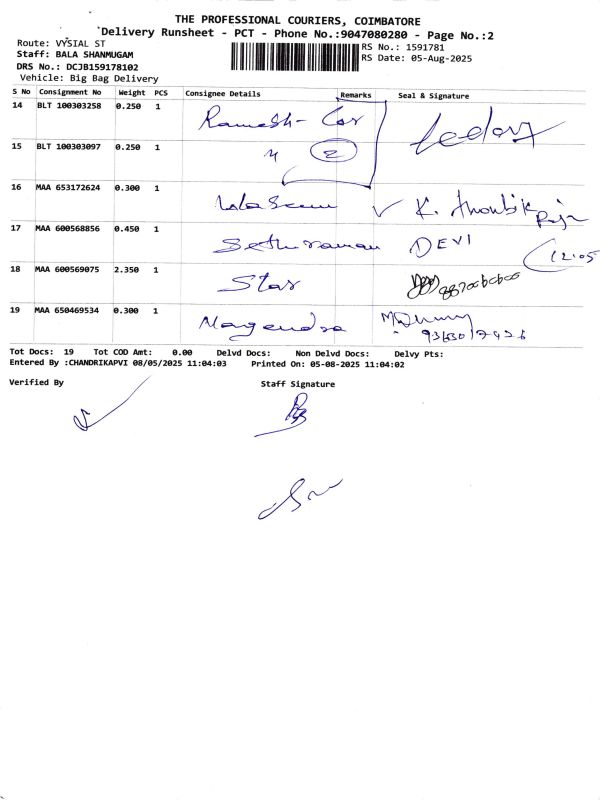 THE PROFESSIONAL COURIERS, COIMBATORE
Delivery Runsheet - PCT - Phone No.:9047080280 - Page No.:2
Route: VYSIAL ST
Staff: BALA SHANMUGAM
DRS No.: DCJB159178102
Vehicle: Big Bag Delivery
RS No.: 1591781
RS Date: 05-Aug-2025
S No Consignment No Weight PCS Consignee Details Remarks Seal & Signature
14 BLT 100303258 0.250 1 Ramesh-
15 BLT 100303097 0.250 1 2
16 MAA 653172624 0.300 1 K.
17 MAA 600568856 0.450 1 Sethuraman DEVI 12:05
18 MAA 600569075 2.350 1 Star
19 MAA 650469534 0.300 1 Nagendra
Tot Docs: 19 Tot COD Amt: 0.00 Delvd Docs: Non Delvd Docs: Delvy Pts:
Entered By :CHANDRIKAPVI 08/05/2025 11:04:03 Printed On: 05-08-2025 11:04:02
Verified By Staff Signature